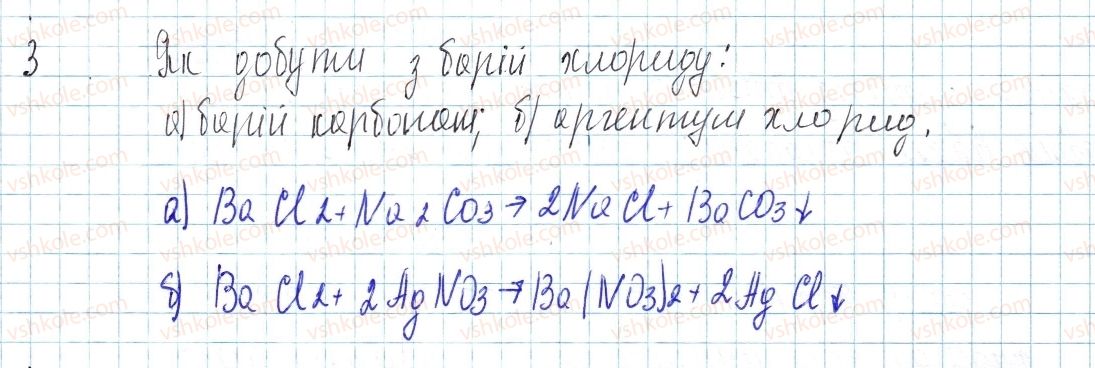 3 Як добути з барій хлориду:
а) барій карбонат; б) аргентум хлорид.
а) BaCl2 + Na2CO3 → 2NaCl + BaCO3↓
б) BaCl2 + 2AgNO3 → Ba(NO3)2 + 2AgCl↓